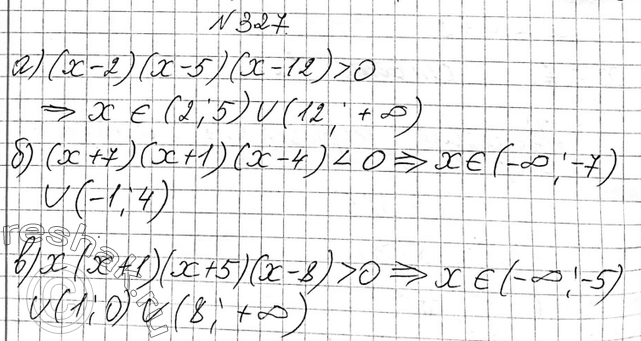 N 327
а) (x-2)(x-5)(x-12)>0
⇒ x ∈ (2;5)∪(12; +∞)
б) (x+7)(x+1)(x-4)<0 ⇒ x∈(-∞;-7)
∪(-1;4)
в) x(x+1)(x+5)(x-8)>0 ⇒ x∈(-∞;-5)
∪(1;0)∪(8; +∞)